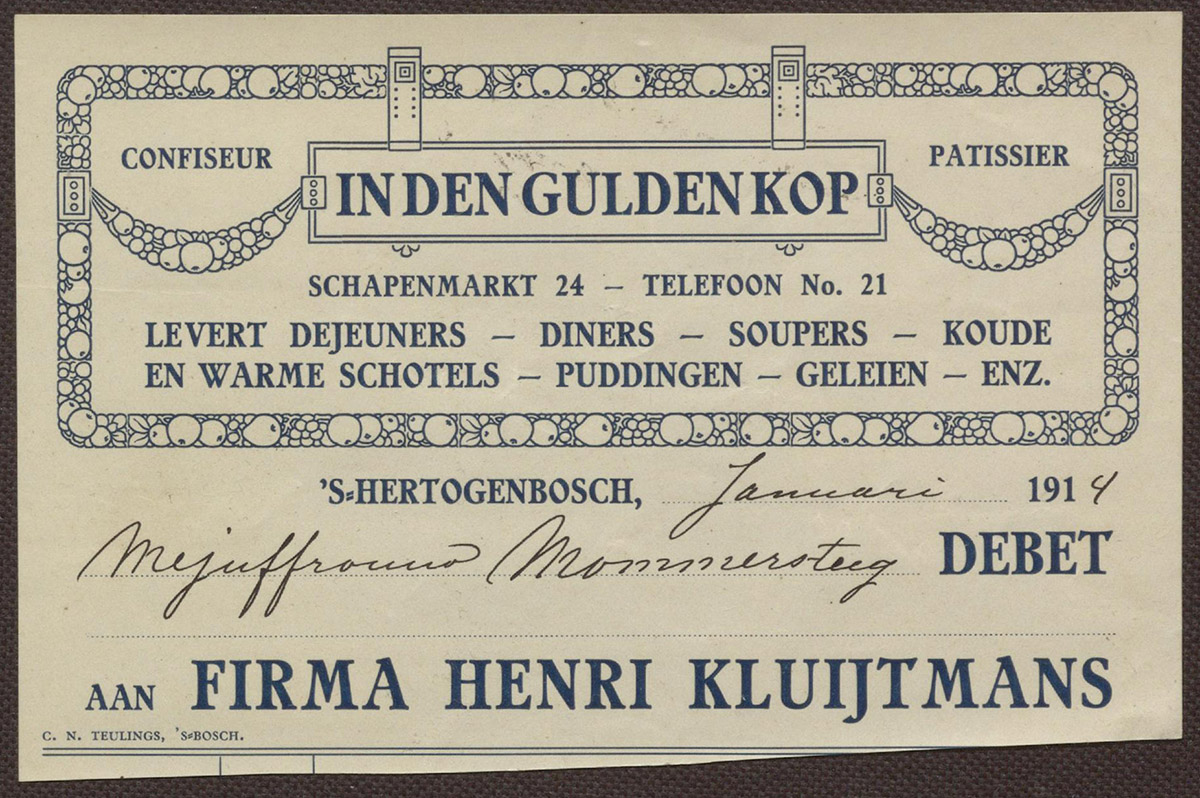 CONFISEUR
PATISSIER
IN DEN GULDEN KOP
SCHAPENMARKT 24 – TELEFOON No. 21
LEVERT DEJEUNERS – DINERS – SOUPERS – KOUDE
EN WARME SCHOTELS – PUDDINGEN – GELEIEN – ENZ.
'S-HERTOGENBOSCH, Januari 1914
Mejuffrouw Mommersteeg DEBET
AAN FIRMA HENRI KLUIJTMANS
C. N. TEULINGS, 'S-BOSCH.